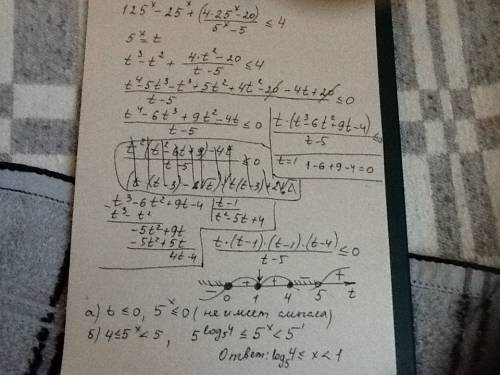 125^x - 25^x + (4·25^x - 20)/(5^x - 5) ≤ 4
5^x = t
t³ - t² + (4·t² - 20)/(t - 5) ≤ 4
(t⁴ - 5t³ - t³ + 5t² + 4t² - 20 - 4t + 20)/(t - 5) ≤ 0
(t⁴ - 6t³ + 9t² - 4t)/(t - 5) ≤ 0
t·(t³ - 6t² + 9t - 4)/(t - 5) ≤ 0
t=1 1-6+9-4=0
t³ - 6t² + 9t - 4 | t - 1
t³ - t² | t² - 5t + 4
-5t² + 9t
-5t² + 5t
4t - 4
t·(t-1)·(t-1)·(t-4)/(t-5) ≤ 0
- + + - +
0 1 4 5 t
а) t ≤ 0, 5^x ≤ 0 (не имеет смысла)
б) 4 ≤ 5^x < 5, 5^(log₅4) ≤ 5^x < 5¹
Ответ: log₅4 ≤ x < 1